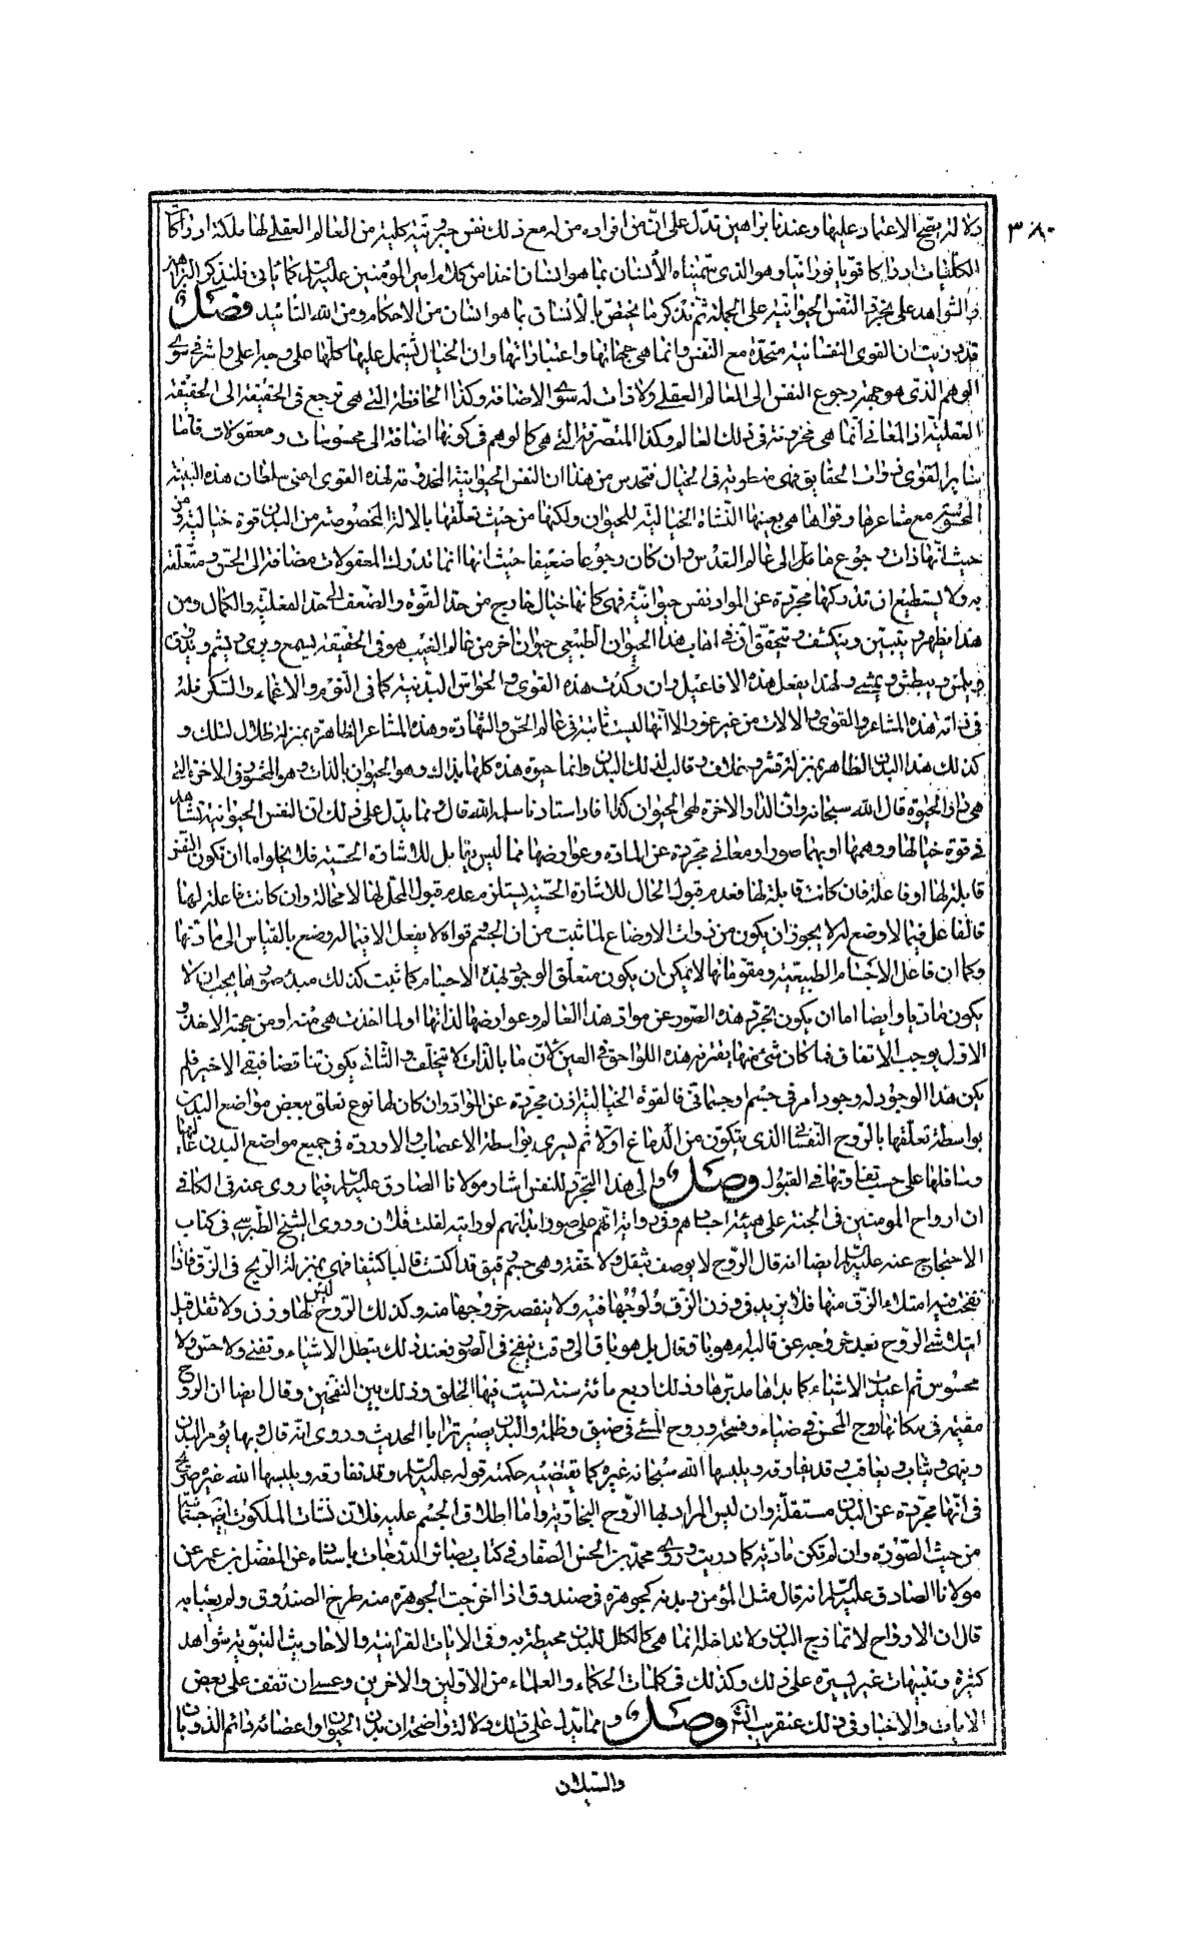 ٣٨٠
دلالة يقبح الاعتماد عليها وعندنا براهين تدل على ان من افراده من له مع ذلك نفس جبروتية كلية من العالم العقلي لها ملكة ادراك
الكليات ادراكا قويا نورانيا وهو الذي سميناه الانسان بما هو انسان اخذا من كلام امير المؤمنين عليه السلم كما ياتي فلنذكر البراهين
والشواهد على تجرد النفس الحيوانية على الجملة ثم نذكر ما يختص بالانسان بما هو انسان من الاحكام ومن الله التائيد فصل
قد دريت ان القوى النفسانية متحدة مع النفس وانما هي جهاتها واعتباراتها وان الخيال تشتمل عليها كلها على وجه اعلى واشرف سوى
الوهم الذي هو جهة رجوع النفس الى العالم العقلي ولا ذات له سوى الاضافة وكذا الحافظة التي هي ترجع في الحقيقة الى الحقيقة
العقلية اذ المعاني انما هي مخزونة في ذلك العالم وكذا المتصرفة التي هي كالوهم في كونها اضافة الى محسوسات ومعقولات فاما
ساير القوى ذوات الحقايق فهي منطوية في الخيال فتحدس من هذا ان النفس الحيوانية المخدومة لهذه القوى اعني سلطان هذه البنية
المحسوسة مع مشاعرها وقواها هي بعينها النشاة الخيالية للحيوان ولكنها من حيث تعلقها بالالة المخصوصة من البدن قوة خيالية ومن
حيث انها ذات رجوع ما مالى الى عالم القدس وان كان رجوعا ضعيفا حيث انها انما تدرك المعقولات مضافة الى الحس ومتعلقة
به ولا يستطيع ان تدركها مجردة عن المواد نفس حيوانية فهي كانها خيال خارج من حد القوة والضعف الى حد الفعلية والكمال ومن
هذا يظهر ويتبين وينكشف ويتحقق ان في اهاب هذا الحيوان الطبيعي حيوان اخر من عالم الغيب هو في الحقيقة يسمع ويرى ويشم ويذوق
ويلمس ويبطش ويمشي ولهذا يفعل هذه الافاعيل وان ركدت هذه القوى والحواس البدنية كما في النوم والاغماء والسكر فله
في ذاته هذه المشاعر والقوى والالات من غير عوز الا انها ليست ثابتة في عالم الحس والشهادة وهذه المشاعر الظاهرة بمنزلة ظلال لتلك و
كذلك هذا البدن الظاهر بمنزلة قشر وغلاف وقالب لذلك البدن وانما حيوة هذه كلها بذلك وهو الحيوان بالذات وهو المحشور في الاخرة التي
هي دار الحيوة قال الله سبحانه وان الدار الاخرة لهي الحيوان كذا افاد استادنا سلمه الله قال ومما يدل على ذلك ان النفس الحيوانية تشاهد
في قوة خيالها ووهمها او بهما صورا ومعاني مجردة عن المادة وعوارضها مما ليس يقابل للاشارة الحسية فلا يخلوا ما ان تكون النفس
قابلة لها او فاعلة فان كانت قابلة لها فعدم قبول الحال للاشارة الحسية يستلزم عدم قبول المحل لها لا محالة وان كانت فاعلة لها
فالفاعل فيما لا وضع له لا يجوز ان يكون من ذوات الاوضاع لما ثبت من ان الجسم وقواه لا يفعل الا فيما له وضع بالقياس الى مادتها
وكما ان فاعل الاجسام الطبيعية ومقوماتها لا يمكن ان يكون متعلق الوجود بهذه الاجسام كما ثبت كذلك مبدء صورها يجب ان لا
يكون ماديا وايضا اما ان يكون تجرد هذه الصور عن مواد هذا العالم وعوارضها لذاتها او لما اخذت هي منه او من جهة الاخذ و
الاول يوجب الاتفاق فما كان شئ منها يقترن هذه اللواحق في العين لان ما بالذات لا يتخلف والثاني يكون تناقضا فبقي الاخير فلم
يكن هذا الوجود له وجود امر في جسم او جسماني فالقوة الخيالية اذن مجردة عن المواد وان كان لها نوع تعلق ببعض مواضع البدن
بواسطة تعلقها بالروح النفساني الذي يتكون من الدماغ اولا ثم يسري بواسطة الاعصاب والاوردة في جميع مواضع البدن عاليها
وسافلها على حسب تفاوتها في القبول وصل والى هذا التجرد للنفس اشار مولانا الصادق عليه السلم فيما روى عنه في الكافي
ان ارواح المومنين في الجنة على هيئة اجسادهم وفي رواية انهم على صور ابدانهم لو رايته لقلت فلان وروى الشيخ الطبرسي في كتاب
الاحتجاج عنه عليه السلم ايضا انه قال الروح لا يوصف بثقل ولا خفة وهي جسم رقيق قد اكتست قالبا كثيفا فهي بمنزلة الريح في الزق فاذا
نفخت فيه امتلاء الزق منها فلا يزيد في وزن الزق ولوجها فيه ولا ينقصه خروجها منه وكذلك الروح ليس لها وزن ولا ثقل قيل
ايتلاشى الروح بعد خروجه عن قالبه ام هو باق فقال بل هو باق الى وقت ينفخ في الصور فعند ذلك تبطل الاشياء وتفنى ولا حس ولا
محسوس ثم اعيدت الاشياء كما بداها مدبرها وذلك اربع مائة سنة تسبت فيها الخلق وذلك بين النفختين وقال ايضا ان الروح
مقيمة في مكانها روح المحسن في ضياء وفسحة وروح المسئ في ضيق وظلمة والبدن يصير ترابا الحديث وروى انه قال وبها يؤمر البدن
وينهى ويثاب ويعاقب وقد يفارقه ويلبسها الله سبحانه غيره كما يقتضيه حكمته قوله عليه السلم وقد تفارقه ويلبسها الله غيره صريح
في انها مجردة عن البدن مستقلة وان ليس المراد بها الروح البخارية واما اطلاق الجسم عليه فلان نشات الملكوت ايضا جسمانية
من حيث الصورة وان لم تكن مادية كما دريت وروى محمد بن الحسن الصفار في كتاب بصائر الدرجات باسناده عن المفضل بن عمر عن
مولانا الصادق عليه السلم انه قال مثل المؤمن وبدنه كجوهرة في صندوق اذا اخرجت الجوهرة منه طرح الصندوق ولم يعبا به
قال ان الارواح لا تمازج البدن ولا تداخله انما هي كالكلل للبدن محيطة به وفي الايات القرانية والاحاديث النبوية شواهد
كثيرة وتنبيهات غير يسيرة على ذلك وكذلك في كلمات الحكماء والعلماء من الاولين والاخرين وعسى ان تقف على بعض
الايات والاخبار في ذلك عنقريب انش وصل ومما يدل على ذلك دلالة واضحة ان بدن الحيوان واعضائه دائم الذوبان
والسيلان